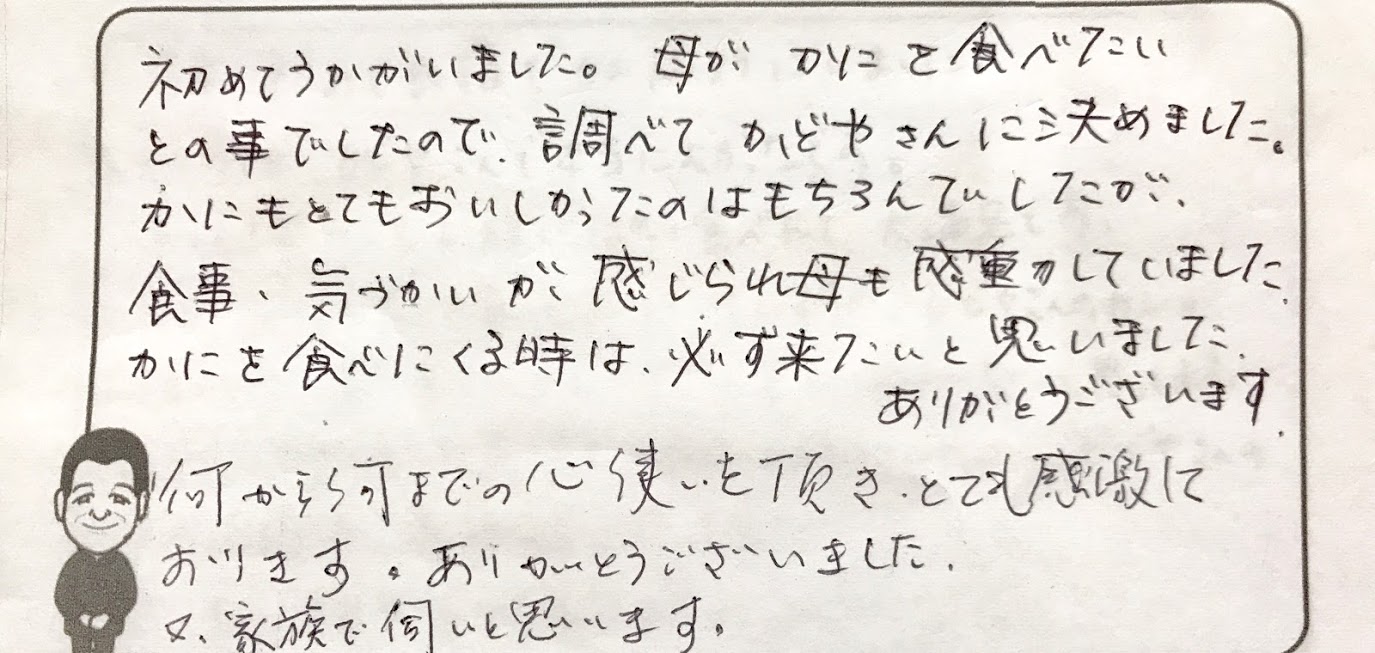 初めてうかがいました。母が かにを食べたい
との事でしたので、調べて かどやさんに決めました。
かにもとてもおいしかったのはもちろんでしたが、
食事、気づかいが感じられ母も感動していました。
かにを食べにくる時は、必ず来たいと思いました。
ありがとうございます。
何から何までの心使いを頂き、とても感激して
おります。ありがとうございました。
又、家族で伺いと思います。